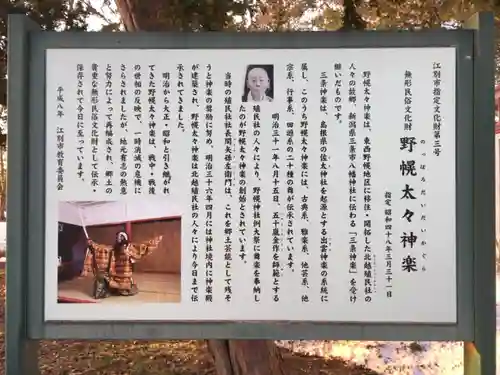 江別市指定文化財第三号
無形民俗文化財
のっぽろだいだいかぐら
野幌太々神楽
指定 昭和四十八年三月三十一日
野幌太々神楽は、東西野幌地区に移住・開拓した北越殖民社の
人々の故郷、新潟県三条市八幡神社に伝わる「三条神楽」を受け
継いだものです。
三条神楽は、島根県の佐太神社を起源とする出雲神楽の系統に
属し、このうち野幌太々神楽には、古典系、雅楽系、他芸系、他
宗系、行事系、田遊系の二十種の舞が伝承されています。
明治三十一年八月十五日、五十嵐金作を師範とする
殖民社の人々により、野幌神社例大祭に舞楽を奉納し
たのが野幌太々神楽の創始とされています。
当時の殖民社社長関矢孫左衛門は、これを郷土芸能として残そ
うと神楽の奨励に努め、明治三十六年四月には神社境内に神楽殿
が建築され、野幌太々神楽は北越殖民社の人々により今日まで伝
承されています。
明治から大正・昭和と引き継がれ
てきた野幌太々神楽は、戦中・戦後
の世相の反映で、一時消滅の危機に
さらされましたが、地元有志の熱意
と努力によって再編成され、郷土の
貴重な無形民俗文化財として伝承・
保存されて今日に至っています。
平成八年 江別市教育委員会